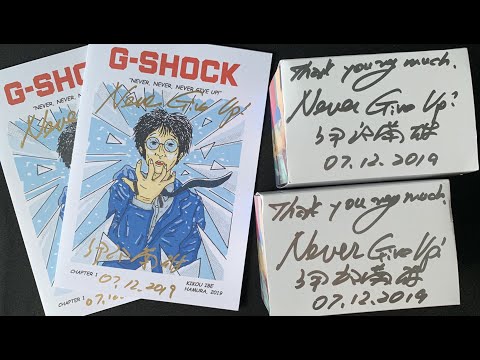 G-SHOCK
"NEVER, NEVER, NEVER GIVE UP!"
Never Give Up!
伊部菊雄
CHAPTER 1
07.12.2019
KIKOU IBE
HAMURA, 2019
G-SH
Never
CHAPTER 1
Thank you very much.
Never Give Up!
伊部菊雄
07.12.2019
Thank you very much.
Never Give Up!
伊部菊雄
07.12.2019